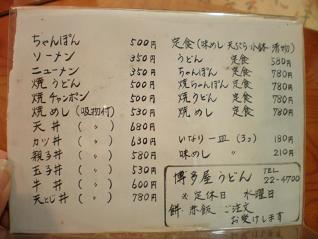 ちゃんぽん 500円
ソーメン 350円
ニューメン 350円
焼うどん 500円
焼チャンポン 500円
焼めし(吸物付) 530円
天丼(〃) 680円
カツ丼(〃) 630円
親子丼(〃) 580円
玉子丼(〃) 530円
牛丼(〃) 600円
天とじ丼(〃) 780円
定食(味めし 天ぷら 小鉢 漬物)
うどん 定食 580円
ちゃんぽん 定食 780円
焼ちゃんぽん 定食 780円
焼うどん 定食 780円
いなり一皿(3コ) 180円
味めし 〃 210円
博多屋うどん TEL 22-4700
※定休日 水曜日
餅・赤飯 ご注文
お受けします